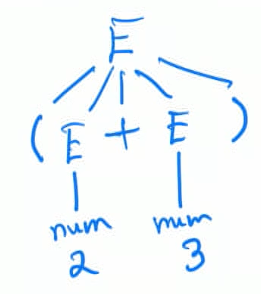 E
( E + E )
num num
2 3